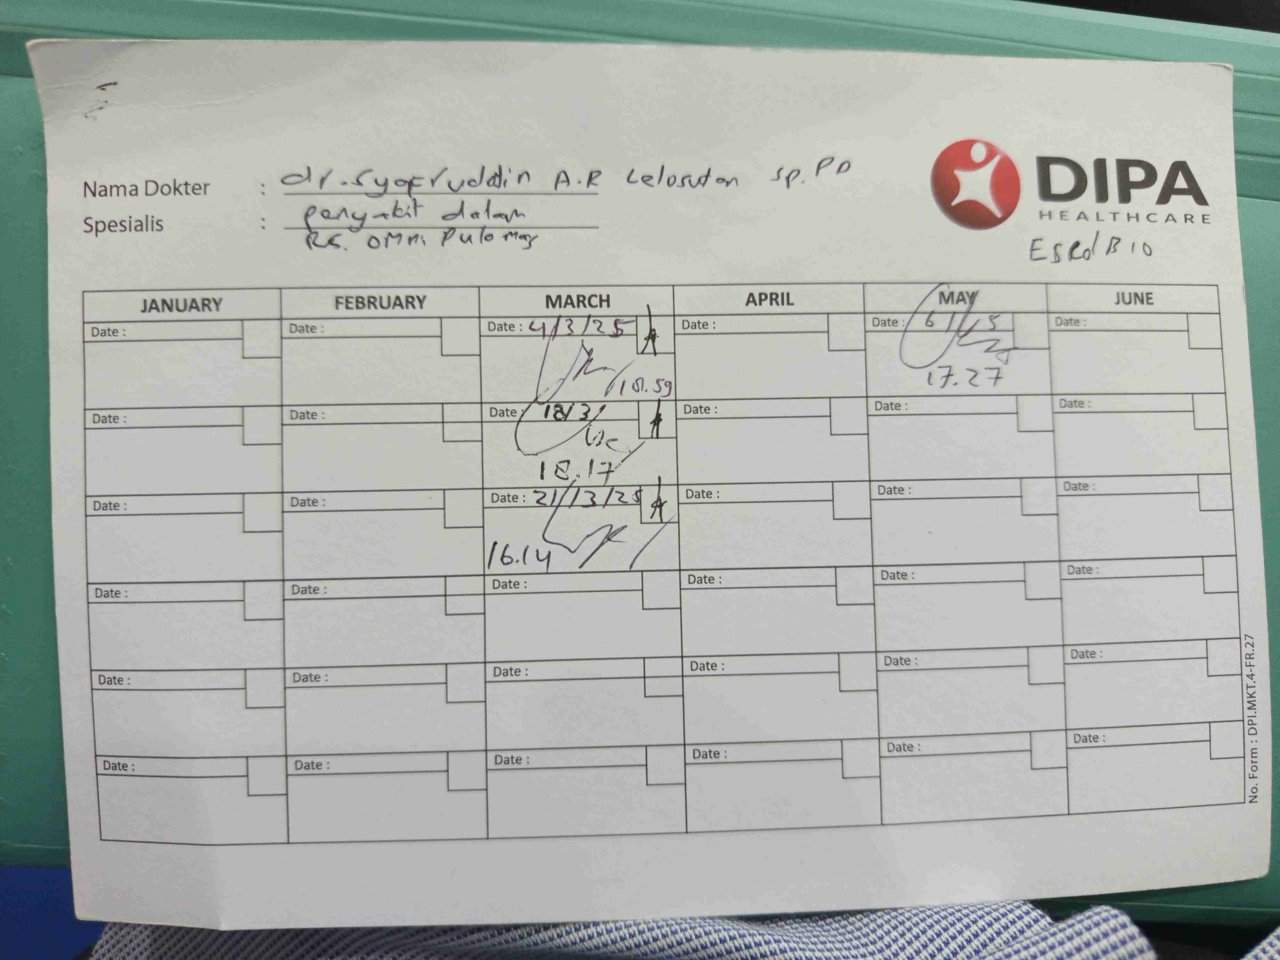 Nama Dokter : dr. Syafruddin A.R Lelosutan Sp.PD
Spesialis : penyakit dalam
RS. OMNi Pulomas
DIPA
HEALTHCARE
JANUARY FEBRUARY MARCH APRIL MAY JUNE
Date : Date : Date : 4/3/25 Date : Date : 6/5 Date :
17.27
Date : Date : Date : 18/3/ Date : Date : Date :
18.17
Date : Date : Date : 21/3/25 Date : Date : Date :
16.14
Date : Date : Date : Date : Date : Date :
Date : Date : Date : Date : Date : Date :
Date : Date : Date : Date : Date : Date :
No. Form : DPI.MKT.4-FR.27